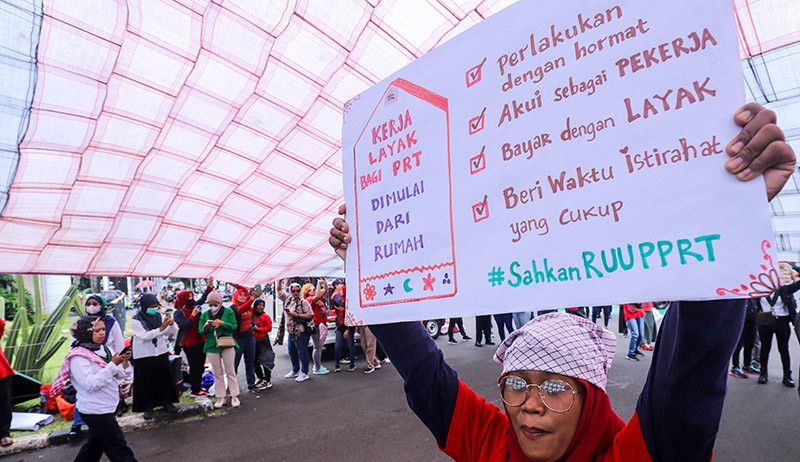 KERJA
LAYAK
BAGI PRT
DIMULAI
DARI
RUMAH
Perlakukan
dengan hormat
Akui sebagai PEKERJA
Bayar dengan LAYAK
Beri Waktu Istirahat
yang cukup
#Sahkan RUU PPRT